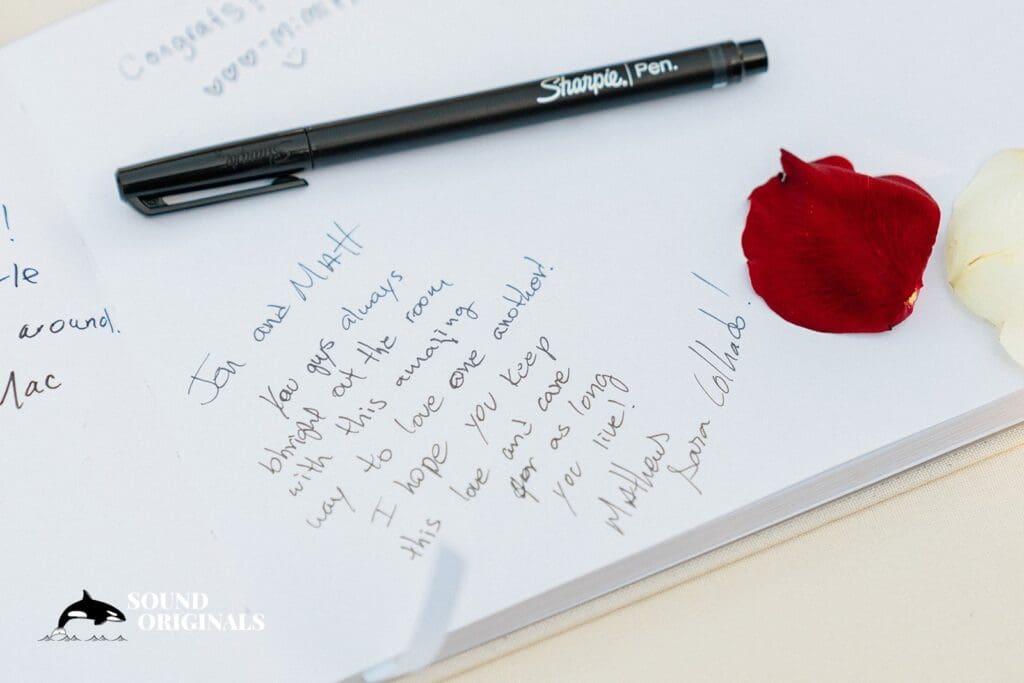 Congrats!
Sharpie. Pen.
Sharpie
!
around.
Mac
Jen and Matt
You guys always
bhright out the room
with this amazing
way to love one another!
I hope you keep
this love and care
for as long
you live!
Mathews
Sara Colhado!
SOUND
ORIGINALS